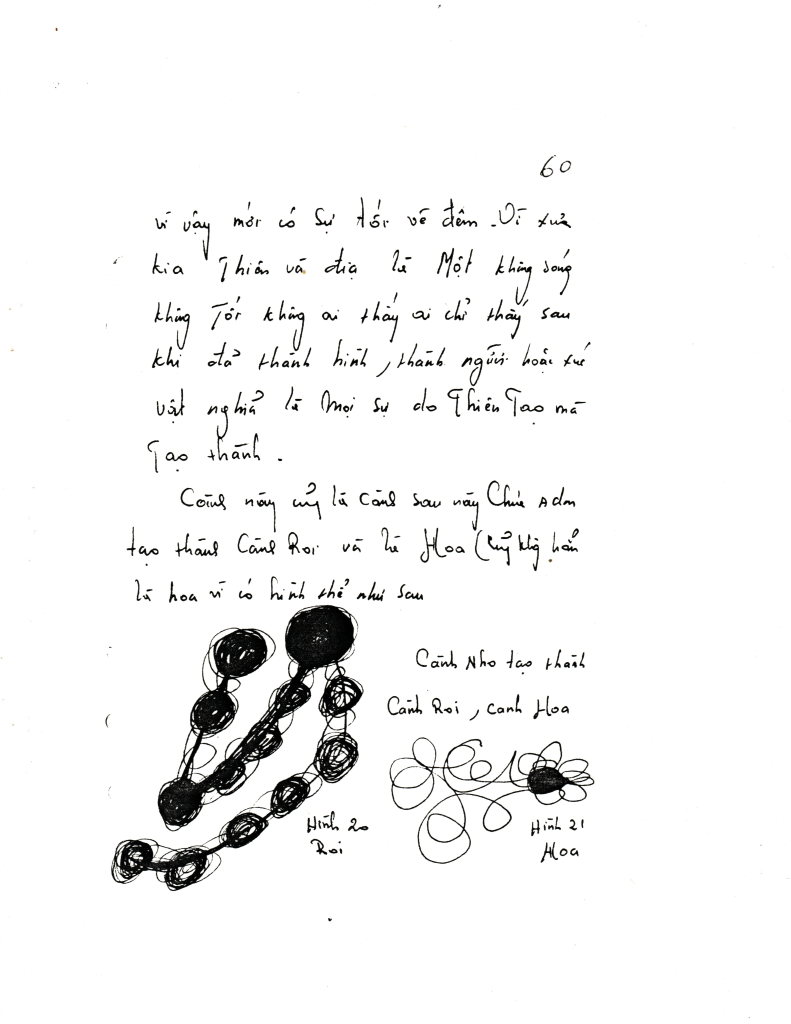 60
vì vậy mới có Sự tối về đêm. Vì xưa
kia Thiên và địa là Một không sáng
không Tối không ai thấy ai chỉ thấy sau
khi đã thành hình, thành người hoặc
vật nghĩa là Mọi sự do Thiên Tạo mà
Tạo thành.
Cành này cũng là Cành sau này Chúa
tạo thành Cành Roi và là Hoa (cũng không hẳn
là hoa vì có hình thể như sau
Cành Nho tạo thành
Cành Roi, canh Hoa
Hình 20
Roi
Hình 21
Hoa